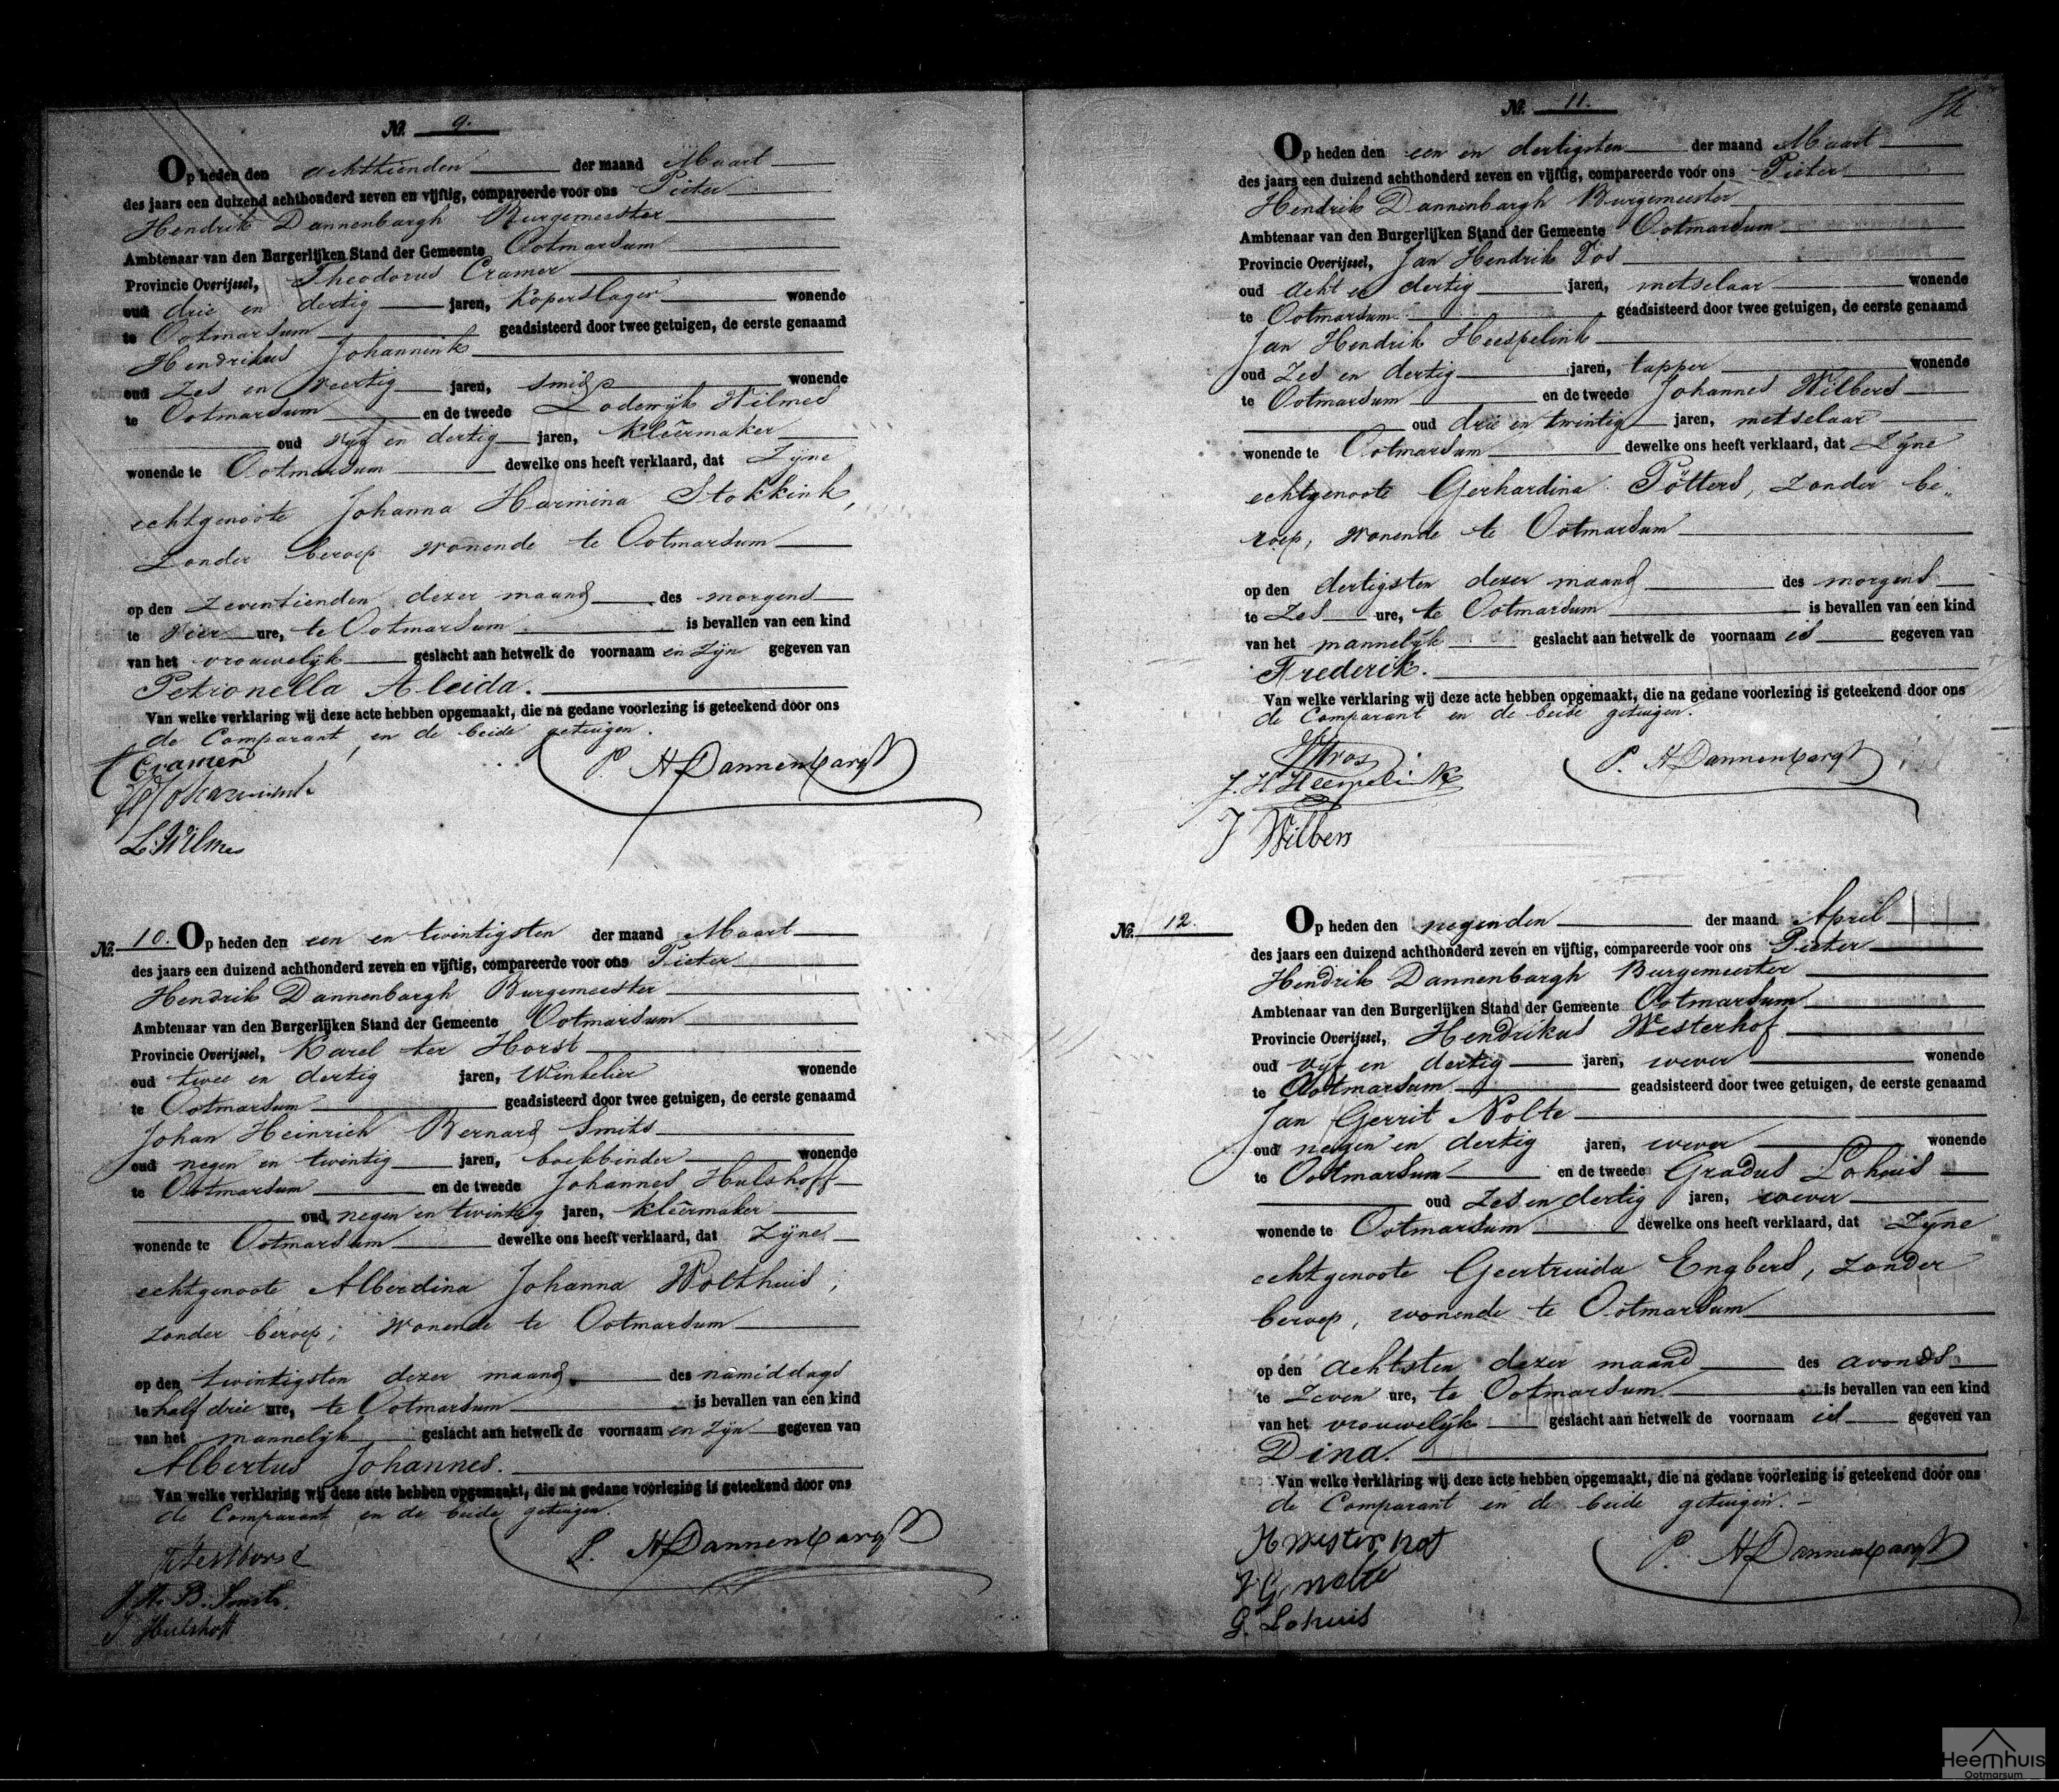 No. 9.
Op heden den achttienden der maand Maart
des jaars een duizend achthonderd zeven en vijftig, compareerde voor ons Pieter
Hendrik Dannenbargh Burgemeester
Ambtenaar van den Burgerlijken Stand der Gemeente Ootmarsum
Provincie Overijssel, Theodorus Cramer
oud drie en dertig jaren, Koperslager wonende
te Ootmarsum geadsisteerd door twee getuigen, de eerste genaamd
Hendrikus Johannink
oud Zes en Veertig jaren, smid wonende
te Ootmarsum en de tweede Lodewijk Wilmes
oud vijf en dertig jaren, kleêrmaker
wonende te Ootmarsum dewelke ons heeft verklaard, dat Zijne
echtgenoote Johanna Harmina Stokkink,
Zonder beroep wonende te Ootmarsum
op den Zeventienden dezer maand des morgens
te Vier ure, te Ootmarsum is bevallen van een kind
van het vrouwelijk geslacht aan hetwelk de voornaam en Zijn gegeven van
Petronella Aleida.
Van welke verklaring wij deze acte hebben opgemaakt, die na gedane voorlezing is geteekend door ons
de Comparant en de beide getuigen.
T Cramer P. H Dannenbargh
Johannink
L. Wilmes
No. 10. Op heden den een en twintigsten der maand Maart
des jaars een duizend achthonderd zeven en vijftig, compareerde voor ons Pieter
Hendrik Dannenbargh Burgemeester
Ambtenaar van den Burgerlijken Stand der Gemeente Ootmarsum
Provincie Overijssel, Karel ter Horst
oud twee en dertig jaren, Winkelier wonende
te Ootmarsum geadsisteerd door twee getuigen, de eerste genaamd
Johan Heinrich Bernard Smits
oud negen en twintig jaren, boekbinder wonende
te Ootmarsum en de tweede Johannes Hulshoff
oud negen en twintig jaren, kleêrmaker
wonende te Ootmarsum dewelke ons heeft verklaard, dat Zijne
echtgenoote Alberdina Johanna Wolthuis,
zonder beroep, wonende te Ootmarsum
op den twintigsten dezer maand des namiddags
te half drie ure, te Ootmarsum is bevallen van een kind
van het mannelijk geslacht aan hetwelk de voornaam en Zijn gegeven van
Albertus Johannes.
Van welke verklaring wij deze acte hebben opgemaakt, die na gedane voorlezing is geteekend door ons
de Comparant en de beide getuigen.
P. H Dannenbargh
J. H. B. Smits.
J Hulshoff
No. 11.
Op heden den een en dertigsten der maand Maart
des jaars een duizend achthonderd zeven en vijftig, compareerde voor ons Pieter
Hendrik Dannenbargh Burgemeester
Ambtenaar van den Burgerlijken Stand der Gemeente Ootmarsum
Provincie Overijssel, Jan Hendrik Vos
oud acht en dertig jaren, metselaar wonende
te Ootmarsum geadsisteerd door twee getuigen, de eerste genaamd
Jan Hendrik Heespelink
oud Zes en dertig jaren, tapper wonende
te Ootmarsum en de tweede Johannes Wilbers
oud drie en twintig jaren, metselaar
wonende te Ootmarsum dewelke ons heeft verklaard, dat Zijne
echtgenoote Gerhardina Pötters, zonder be„
roep, wonende te Ootmarsum
op den dertigsten dezer maand des morgens
te Zes ure, te Ootmarsum is bevallen van een kind
van het mannelijk geslacht aan hetwelk de voornaam is gegeven van
Frederik.
Van welke verklaring wij deze acte hebben opgemaakt, die na gedane voorlezing is geteekend door ons
de Comparant en de beide getuigen.
P. H Dannenbargh
J. H Heespelink
J Wilbers
No. 12. Op heden den negenden der maand April
des jaars een duizend achthonderd zeven en vijftig, compareerde voor ons Pieter
Hendrik Dannenbargh Burgemeester
Ambtenaar van den Burgerlijken Stand der Gemeente Ootmarsum
Provincie Overijssel, Hendrikus Westerhof
oud vijf en dertig jaren, wever wonende
te Ootmarsum geadsisteerd door twee getuigen, de eerste genaamd
Jan Gerrit Nolte
oud negen en dertig jaren, wever wonende
te Ootmarsum en de tweede Gradus Lohuis
oud Zes en dertig jaren, wever
wonende te Ootmarsum dewelke ons heeft verklaard, dat Zijne
echtgenoote Geertruida Engbers, zonder
beroep, wonende te Ootmarsum
op den achtsten dezer maand des avonds
te Zeven ure, te Ootmarsum is bevallen van een kind
van het vrouwelijk geslacht aan hetwelk de voornaam is gegeven van
Dina.
Van welke verklaring wij deze acte hebben opgemaakt, die na gedane voorlezing is geteekend door ons
de Comparant en de beide getuigen.
H westerhof P. H Dannenbargh
J G nolte
G. Lohuis
Heemhuis
Ootmarsum